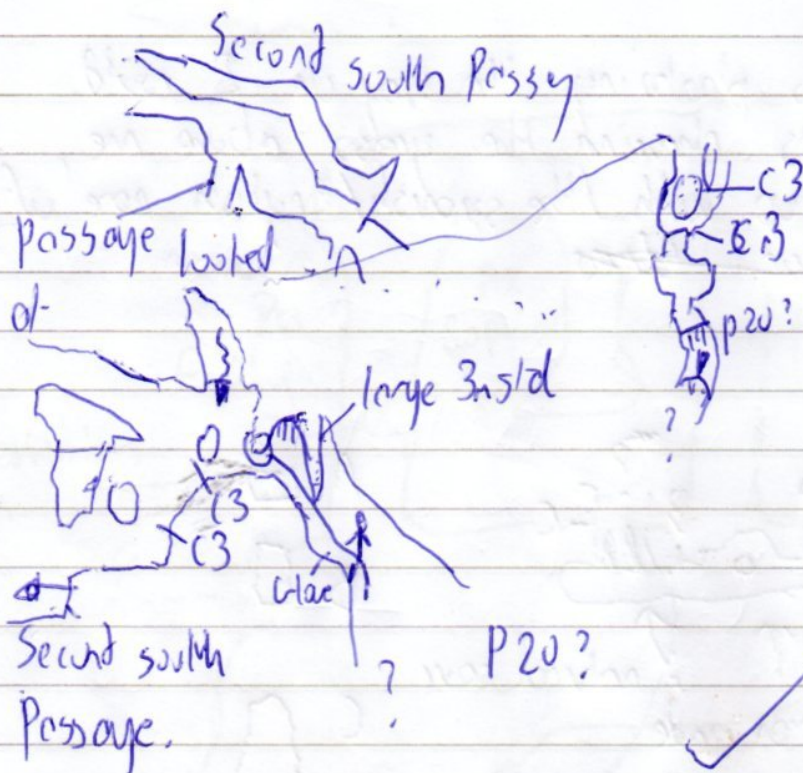 Second south Passy
C3
C3
passage looked
at
P20?
?
large 3m std
C3
C3
Second south
Passage.
?
P20?